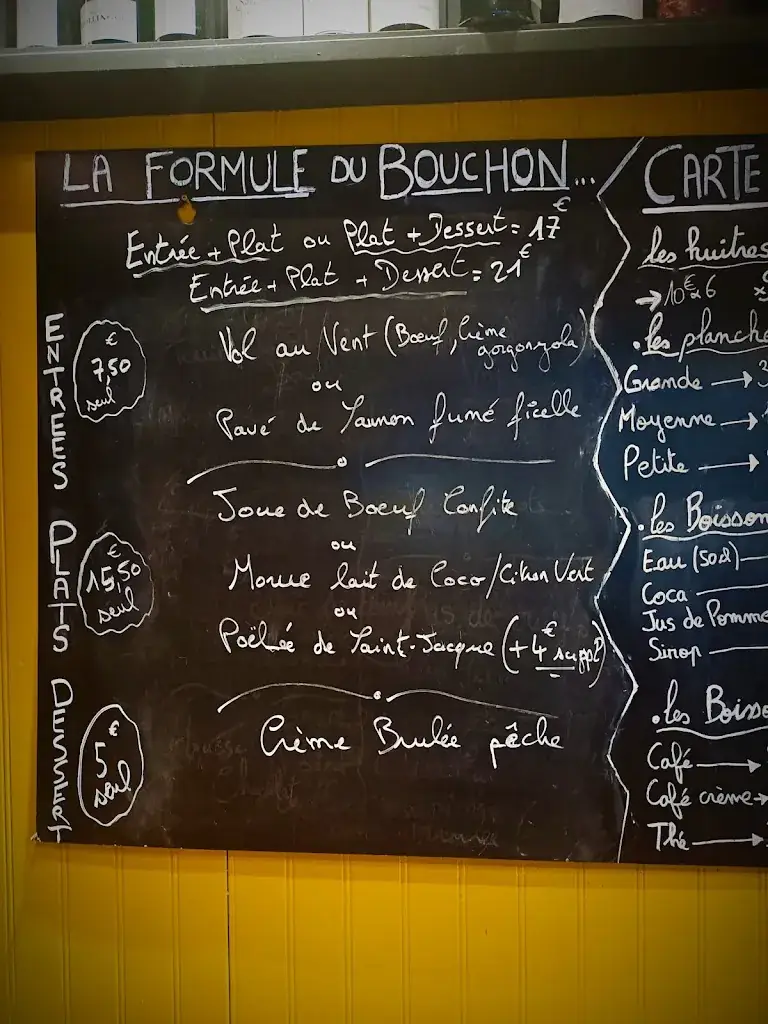 LA FORMULE DU BOUCHON...
Entrée + Plat ou Plat + Dessert = 17€
Entrée + Plat + Dessert = 21€
ENTREES
7,50€ seul
Vol au Vent (Boeuf, Crème gorgonzola)
ou
Pavé de Saumon fumé ficelle
PLATS
15,50€ seul
Joue de Boeuf Confite
ou
Morue lait de Coco/Citron Vert
ou
Poëlée de Saint-Jacque (+4€ suppl)
DESSERT
5€ seul
Crème Brulée pêche
CARTE
les huitres
→ 10€ 6
. les planche
Grande →
Moyenne →
Petite →
. les Boisson
Eau (50cl)
Coca
Jus de Pomme
Sirop
. les Boisso
Café →
Café crème →
Thé →